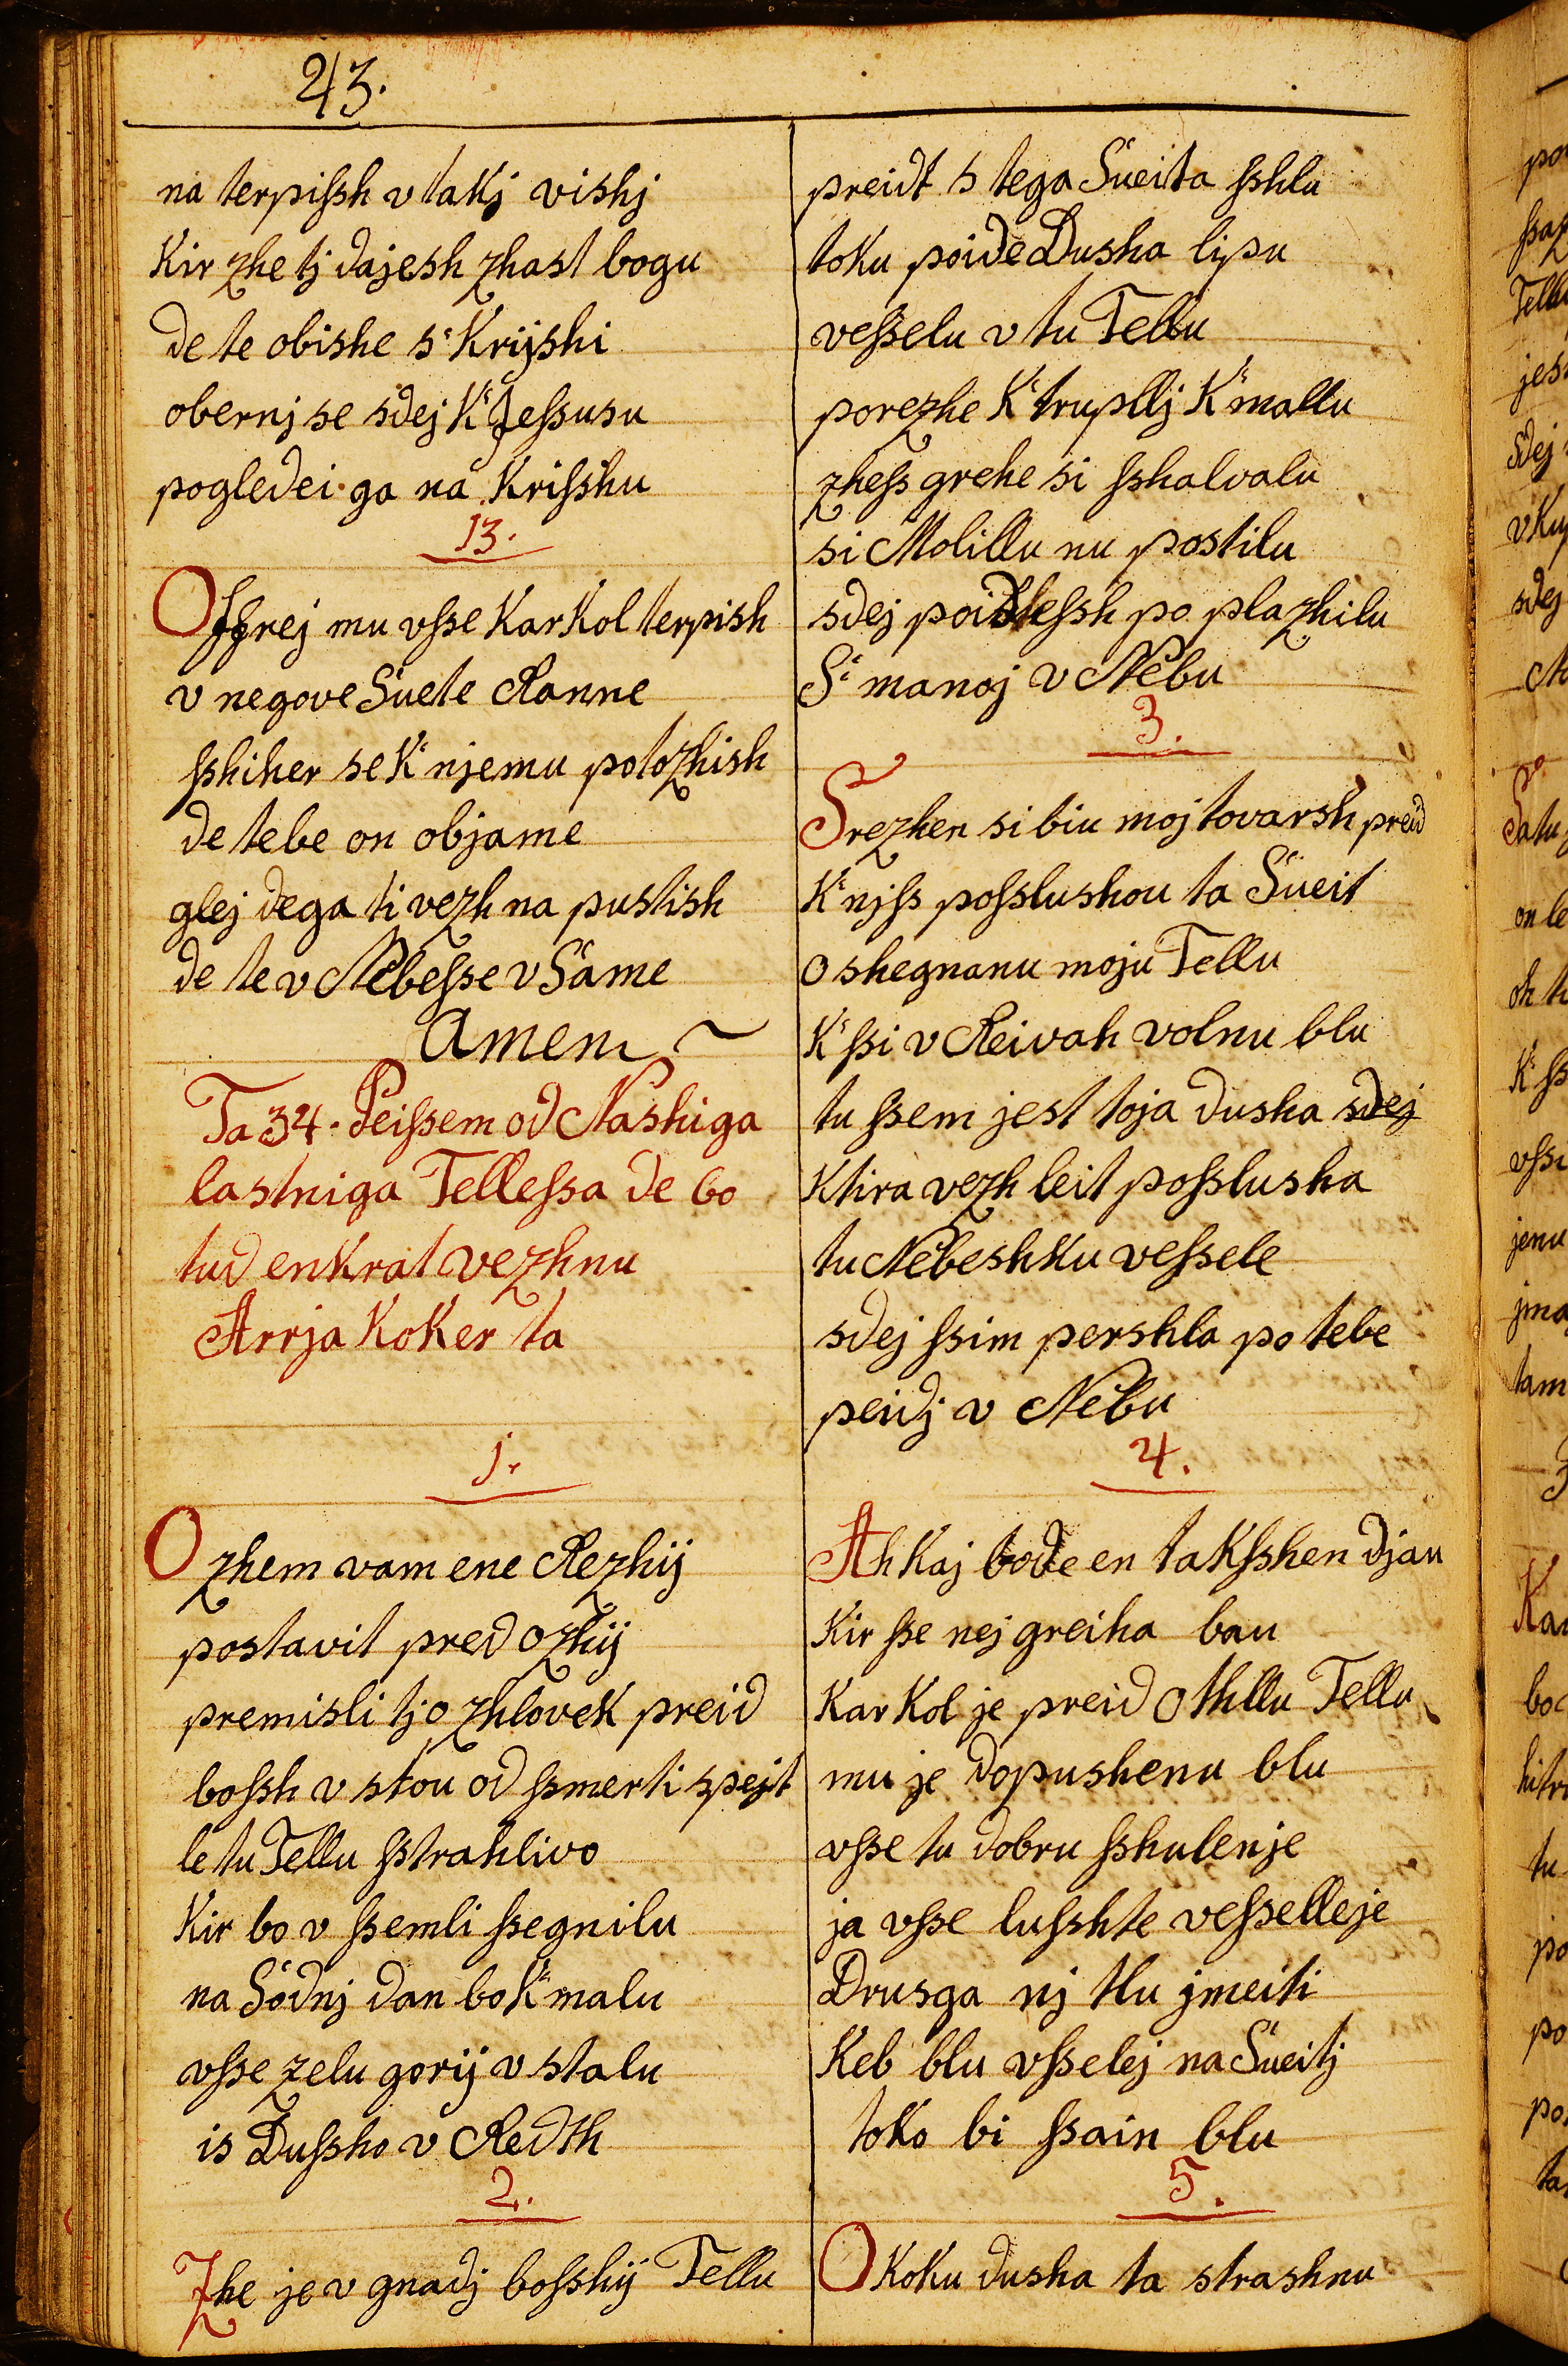 43.
na terpiſsh v takj vishj
Kir zhe tj dajesh zhast bogu
de te obishe s' Krijshi
obernj se sdej K' Jeſsusu
pogledei ga na Kriſshu
13.
Offrej mu vſse KarKol terpish
v negove Suete Ranne
ſshiher se K' njemu potozhish
de tebe on objame
glej dega ti vezh na pustish
de te v Nebeſse v Same
Amen
Ta 34. Peiſsem od Nashiga
lastniga Telleſsa de bo
tud enkrat vezhnu
Arrja KoKer ta
1.
O zhem vam ene Rezhij
postavit pred ozhij
premisli tj o zhlovek preid
boſsh v stou od ſsmerti spejt
le tu Tellu ſstrahlivo
Kir bo v ſsemli ſsegnilu
na Sodnj dan bo K' malu
vſse zelu gorij v stalu
is Duſsho v Redth
2.
Zhe je v gnadj boſshij Tellu
preidt s tega Sueita ſshlu
toku poide Dusha lipu
veſselu v tu Tellu
porezhe K' trupllj K' mallu
zheſs grehe si ſshalvalu
si Molillu nu postilu
sdej poideſsh po plazhilu
S' manoj v Nebu
3.
Srezhen si biu moj tovarsh preid
K' njſs poſslushou ta Sueit
O shegnanu moju Tellu
K' ſsi v Reivah volnu blu
tu ſsem jest toja dusha sdej
Ktira vezh leit poſslusha
tu Nebeshku veſsele
sdej ſsim pershla po tebe
peidj v Nebu
4.
Ah Kaj bode en takſshen djau
Kir ſse nej greiha bau
KarKol je preid Othllu Tellu
mu je dopushenu blu
vſse tu dobru ſshulenje
ja vſse luſshte veſselleje
Drusga nj tlu jmeiti
Keb blu vſselej na Sueitj
toko bi ſsain blu
5.
O Koku dusha ta strashnu